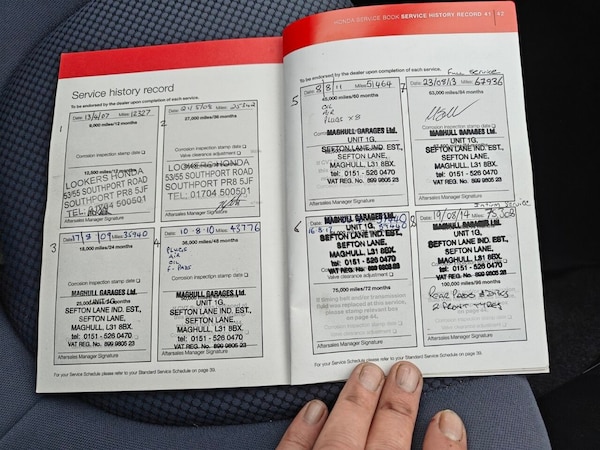 HONDA SERVICE BOOK SERVICE HISTORY RECORD 41 | 42
Service history record
To be endorsed by the dealer upon completion of each service.
1
Date: 13/4/07 Miles: 12327
9,000 miles/12 months
Corrosion inspection stamp date
12,500 miles/12 months
LOOKERS HONDA
53/55 SOUTHPORT ROAD
SOUTHPORT PR8 5JF
TEL: 01704 500501
Aftersales Manager Signature
2
Date: 21/5/08 Miles: 25242
27,000 miles/36 months
Corrosion inspection stamp date
Valve clearance adjustment
LOOKERS HONDA
53/55 SOUTHPORT ROAD
SOUTHPORT PR8 5JF
TEL: 01704 500501
Aftersales Manager Signature
3
Miles: 35940
18,000 miles/24 months
Corrosion inspection stamp date
MAGHULL GARAGES Ltd.
UNIT 1G,
SEFTON LANE IND. EST.,
SEFTON LANE,
MAGHULL, L31 8BX.
tel: 0151 - 526 0470
VAT REG. No. 899 9805 23
Aftersales Manager Signature
4
Date: 10-8-10 Miles: 43776
36,000 miles/48 months
PLUGS
AIR
OIL
F. PADS
Corrosion inspection stamp date
MAGHULL GARAGES Ltd.
UNIT 1G,
SEFTON LANE IND. EST.,
SEFTON LANE,
MAGHULL, L31 8BX.
tel: 0151 - 526 0470
VAT REG. No. 899 9805 23
Aftersales Manager Signature
For your Service Schedule please refer to your Standard Service Schedule on page 39.
To be endorsed by the dealer upon completion of each service.
Full Service
5
Date: 8/8/11 Miles: 51464
45,000 miles/60 months
OIL
AIR
PLUGS x 8
MAGHULL GARAGES Ltd.
UNIT 1G,
SEFTON LANE IND. EST.,
SEFTON LANE,
MAGHULL, L31 8BX.
tel: 0151 - 526 0470
VAT REG. No. 899 9805 23
Aftersales Manager Signature
7
Date: 23/08/13 Miles: 67936
63,000 miles/84 months
Corrosion inspection stamp date
MAGHULL GARAGES Ltd.
UNIT 1G,
SEFTON LANE IND. EST.,
SEFTON LANE,
MAGHULL, L31 8BX.
tel: 0151 - 526 0470
VAT REG. No. 899 9805 23
Aftersales Manager Signature
6
MAGHULL GARAGES Ltd.
UNIT 1G,
SEFTON LANE IND. EST.,
SEFTON LANE,
MAGHULL, L31 8BX.
tel: 0151 - 526 0470
VAT REG. No. 899 9805 23
75,000 miles/72 months
If timing belt and/or transmission
fluid was replaced at this service,
please stamp relevant box
on page 44.
Corrosion inspection stamp date
Valve clearance adjustment
Aftersales Manager Signature
Service
8
Date: 19/08/14 Miles: 75308
MAGHULL GARAGES Ltd.
UNIT 1G,
SEFTON LANE IND. EST.,
SEFTON LANE,
MAGHULL, L31 8BX.
tel: 0151 - 526 0470
VAT REG. No. 899 9805 23
100,000 miles/96 months
REAR PADS & DISKS
2 FRONT TYRES
Aftersales Manager Signature
For your Service Schedule please refer to your Standard Service Schedule on page 39.